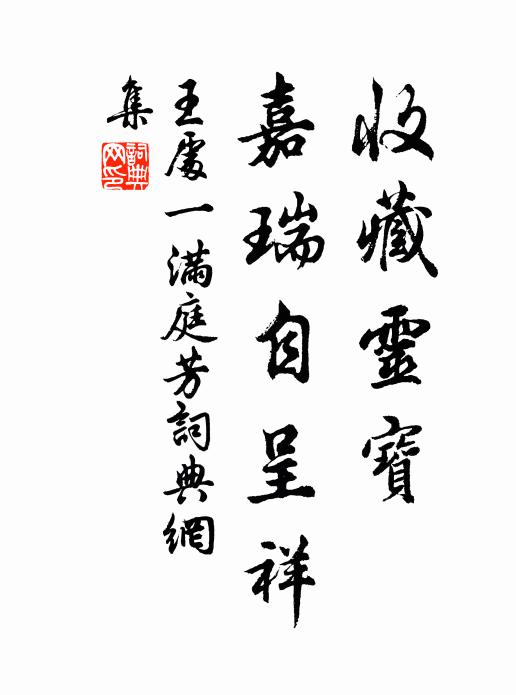 收藏靈寶
嘉瑞自呈祥
王處一滿庭芳詞典網
集
詞典網印